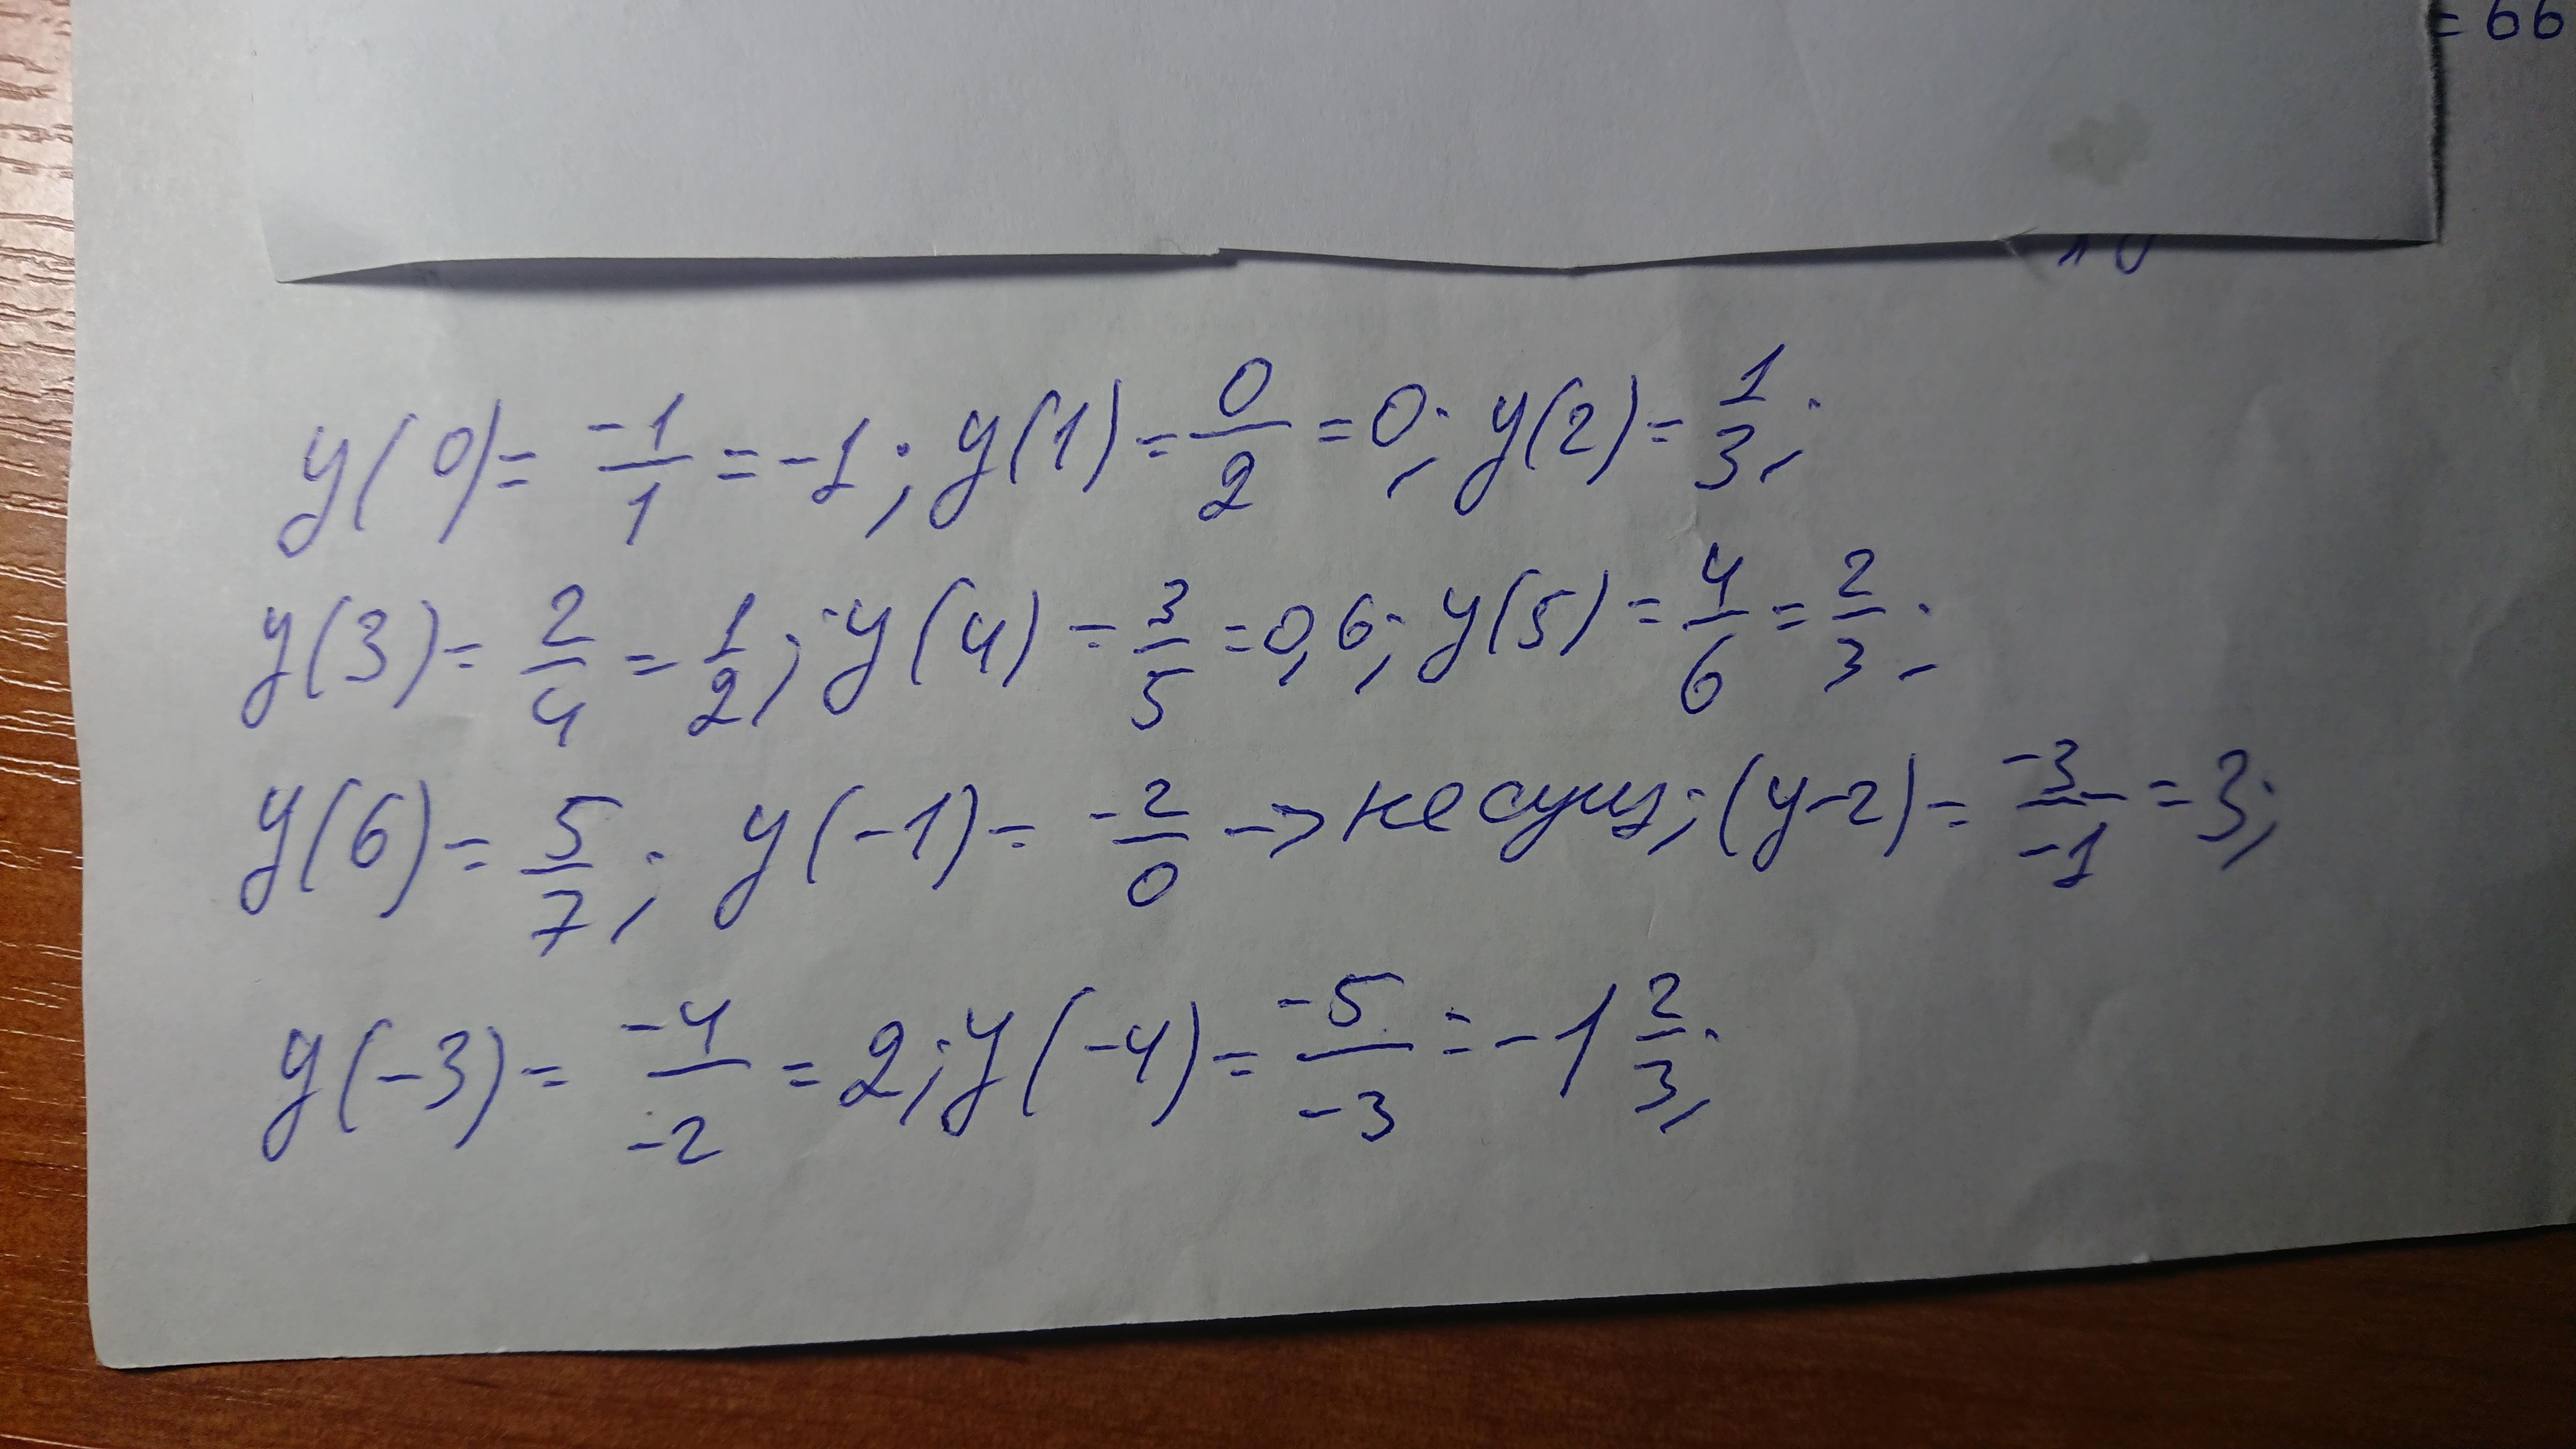 = 66
y(0) = -1/1 = -1; y(1) = 0/2 = 0; y(2) = 1/3;
y(3) = 2/4 = 1/2; y(4) = 3/5 = 0,6; y(5) = 4/6 = 2/3;
y(6) = 5/7; y(-1) = -2/0 -> не сущ; (y-2) = -3/-1 = 3;
y(-3) = -4/-2 = 2; y(-4) = -5/-3 = -1 2/3;